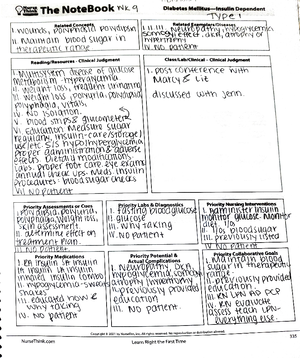 Nurse Think
The NoteBook
Wk. 9
Diabetes Mellitus—Insulin Dependent
Type 1
Related Concepts
I. wounds, polyphagia, polydipsia
II. Maintain blood sugar in
therapeutic range
Related Exemplars/Diseases
I. II. III. neuropathy, hypoglycemia
somogyi effect, atrophy or
hypertrophy
IV. no patient
Reading/Resources - Clinical Judgment
I. Multisystem disease of glucose
metabolism - hyperglycemia
II. weight loss, frequent urinating
III. weight loss, polyuria, polydipsia,
polyphagia, vitals,
IV. No isolation.
V. blood strips & glucometer
VI. education: Measure sugar
regularly, insulin-care/storage/
use/etc. S/S hypo/hyperglycemia
proper administration & adverse
effects. Dietary modifications.
labs. proper foot care, eye exams,
annual check ups. Meds: insulin
Procedures: blood sugar checks
VII. No patient
Class/Lab/Clinical - Clinical Judgment
I. post conference with
Mary & Liz
discussed with Jenn.
Priority Assessments or Cues
I. polydipsia, polyuria,
polyphagia, weight loss,
skin assessment.
II. determine effect on
treatment plan.
III. no patient
Priority Labs & Diagnostics
I. fasting blood glucose
II. glucose
III. Why taking
IV. no patient
Priority Nursing Interventions
I. administer insulin
monitor glucose. Monitor
diet.
II. blood sugar
III. previously listed
IV. no patient
Priority Medications
insulin
insulin
mixed, insulin combo
II. hypoglycemia - sweats
shakes
III. educated how &
why taking
IV. No patient
Priority Potential &
Actual Complications
I. neuropathy, DKA,
hypoglycemia, somogyi,
atrophy, hypertrophy
II. previously provided
education
III. No patient.
Priority Collaborative Goals
I. Maintain blood
sugar in therapeutic
range.
II. previously provided
education.
III. RN, LPN, PCP
RN evaluate
assess teach LPN-
everything else.
IV. no patient
Copyright © 2021 by NurseThink, Inc. All rights reserved. No reproduction or distribution allowed.
NurseThink.com
Learn Right the First Time
335